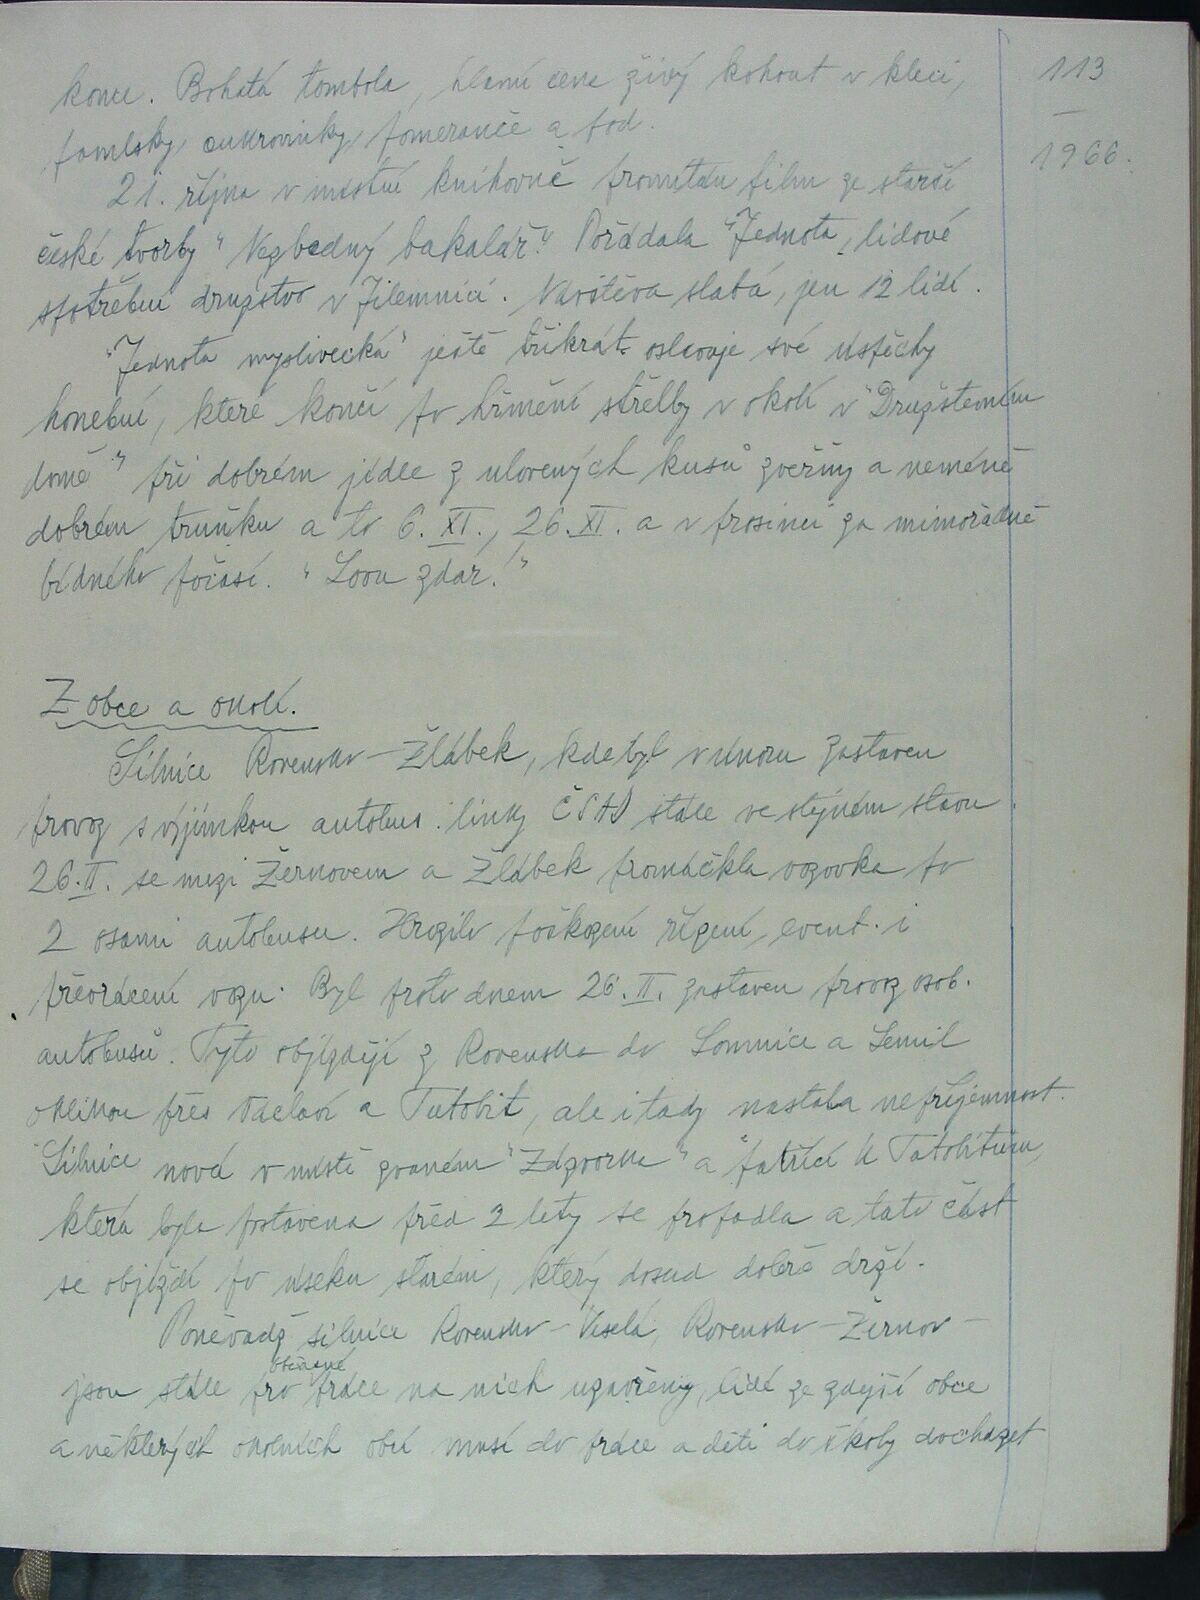 113
1966.
konci. Bohatá tombola, hlavní cena živý kohout v kleci,
pamlsky, cukrovinky, pomeranče a pod.
21. října v místní knihovně promítán film ze starší
české tvorby "Nezbedný bakalář." Pořádala "Jednota, lidové
spotřební družstvo v Jilemnici. Návštěva slabá, jen 12 lidí.
"Jednota myslivecká" ještě třikrát oslavuje své úspěchy
honební, které končí po hřmění střelby v okolí v "Družstevním
domě" při dobrém jídle z ulovených kusů zvěřiny a neméně
dobrém truňku a to 6. XI., 26. XI. a v prosinci za mimořádně
bídného počasí. "Lovu zdar!"
Z obce a okolí.
Silnice Rovensko - Žlábek, kde byl v únoru zastaven
provoz s výjimkou autobus. linky ČSAD stále ve stejném stavu.
26. II. se mezi Žernovem a Žlábek promáčkla vozovka po
2 osami autobusu. Hrozilo poškození řízení, event. i
převrácení vozu. Byl proto dnem 26. II. zastaven provoz osob.
autobusů. Tyto objíždějí z Rovenska do Lomnice a Semil
oklikou přes a Tatobit, ale i tady nastala nepříjemnost.
Silnice nová v místě zvaném "Zdvorka" a patřící k Tatobitům,
která byla postavena před 2 lety se propadla a tato část
se objíždí po úseku starém, který dosud dobře drží.
Poněvadž silnice Rovensko - Veselá, Rovensko - Žernov -
jsou stále pro občasné práce na nich uzavřeny, lidé ze zdejší obce
a některých okolních obcí musí do práce a děti do školy docházet